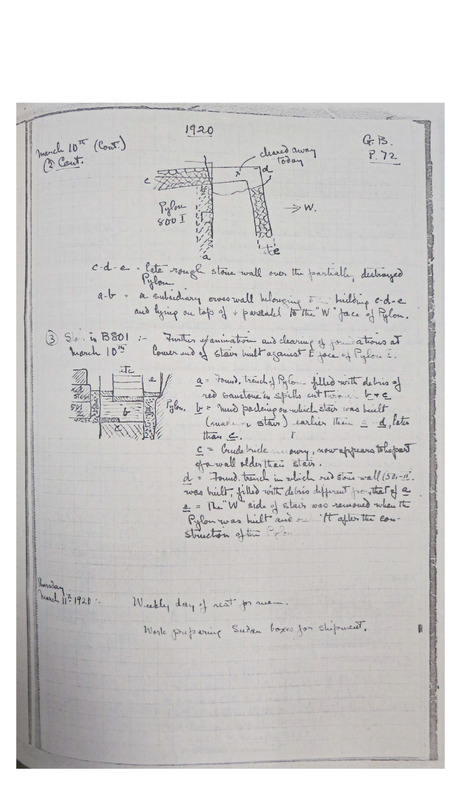 1920
March 10th (Cont.)
② Cont.
G.B.
P. 72
cleared away
today
c
x
d
Pylon
800 I
→ W.
a
e
c-d-e = late rough stone wall over the partially destroyed
Pylon.
a-b = a subsidiary cross wall belonging building c-d-e
and lying on top of + parallel to the "W" face of Pylon.
③ in B801 :- Further examination and clearing of at
March 10th lower end of stair built against E face of Pylon I.
e
b
c
Pylon.
a = Found. trench of Pylon filled with debris of
red sandstone in spills cut b + c
b = mud packing on which stair was built
( stair) earlier than d, later
than c.
c = Crude brick now appears to be part
of a wall older than stair.
d = Found. trench in which red wall
was built, filled with debris different that of a
e = the "W" side of stair was removed when the
Pylon was built and after the con-
struction of the Pylon
Thursday
March 11th 1920 :- Weekly day of rest for men.
Work preparing Sudan boxes for shipment.